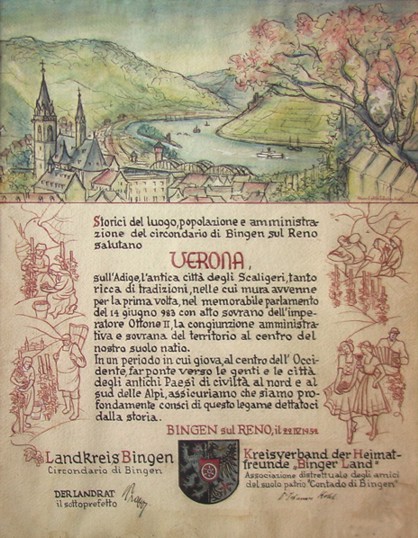 Storici del luogo, popolazione e amministra-
zione del circondario di Bingen sul Reno
salutano
VERONA,
sull'Adige, l'antica città degli Scaligeri, tanto
ricca di tradizioni, nelle cui mura avvenne
per la prima volta, nel memorabile parlamento
del 14 giugno 983 con atto sovrano dell'impe-
ratore Ottone II, la congiunzione amministra-
tiva e sovrana del territorio al centro del
nostro suolo natio.
In un periodo in cui giova, al centro dell' Occi-
dente, far ponte verso le genti e le città
degli antichi Paesi di civiltà al nord e al
sud delle Alpi, assicuriamo che siamo pro-
fondamente consci di questo legame dettatoci
dalla storia.
BINGEN sul RENO, il
Landkreis Bingen
Circondario di Bingen
DER LANDRAT
il sottoprefetto
Kreisverband der Heimat-
freunde „Binger Land"
Associazione distrettuale degli amici
del suolo patrio "Contado di Bingen"